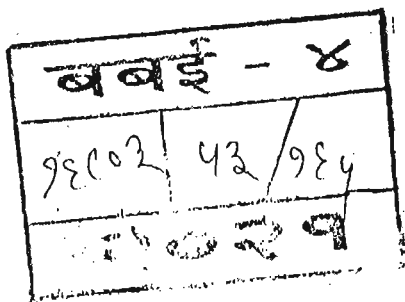 बबई - ४
१६८०२ ५३/१६५
२०२१